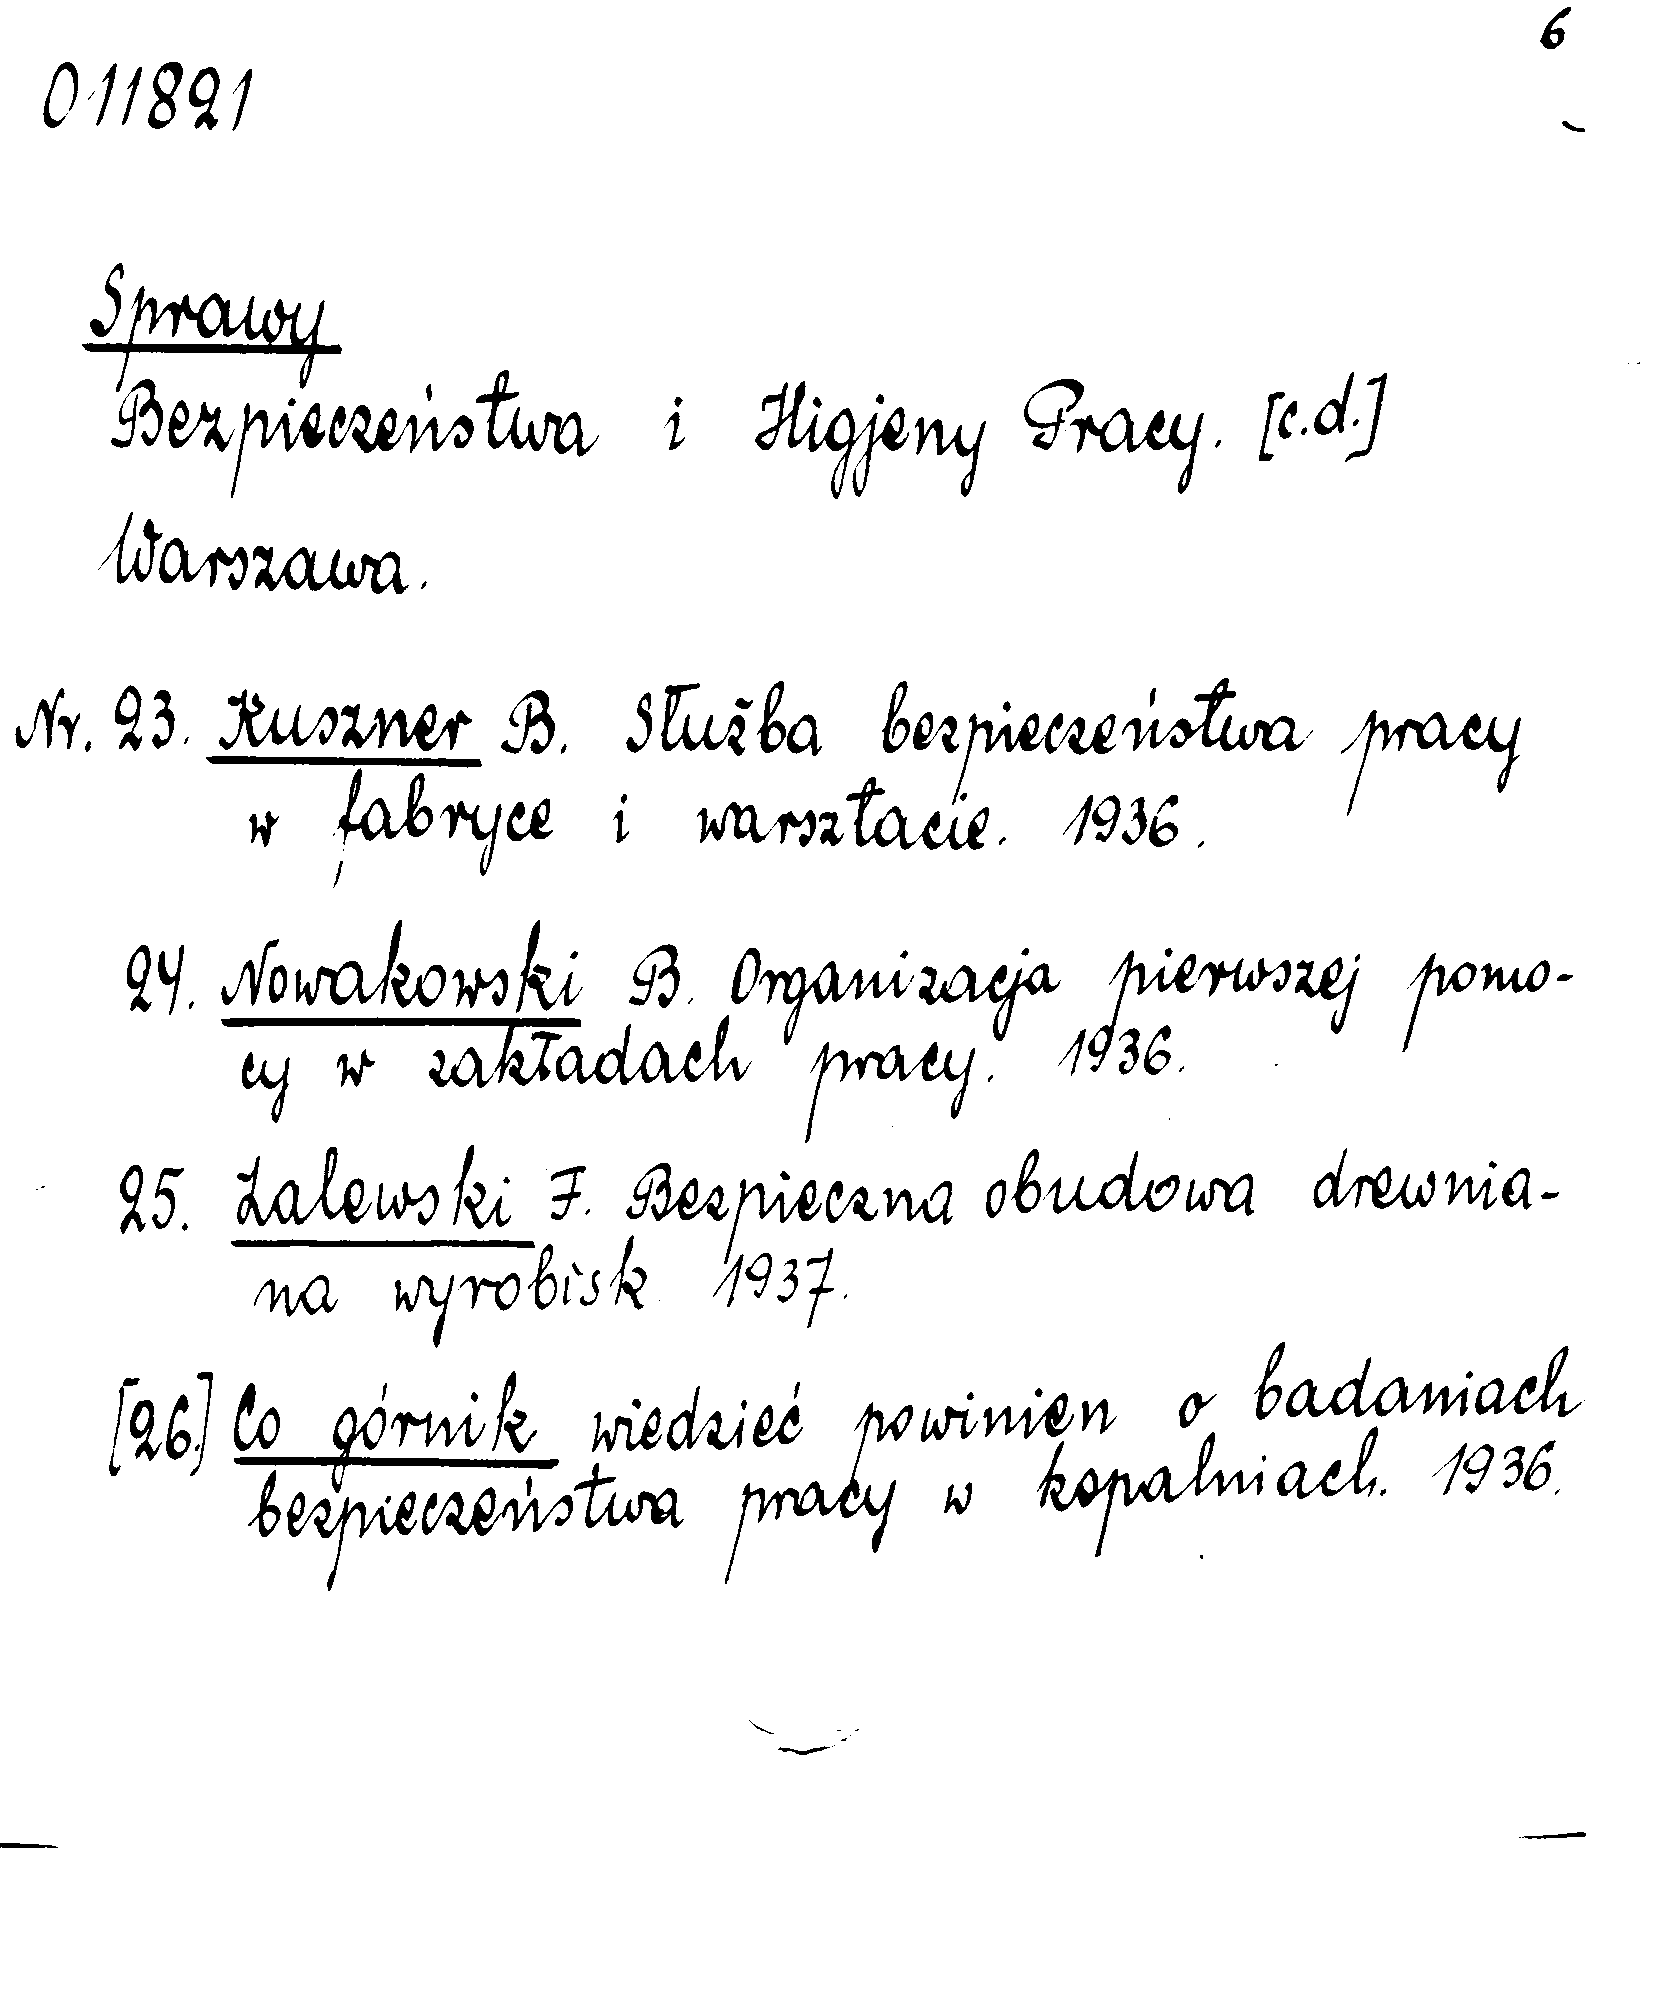 6
011821
Sprawy
Bezpieczeństwa i Higjeny Pracy. [c.d.]
Warszawa.
Nr. 23. Kuszner B. Służba bezpieczeństwa pracy
w fabryce i warsztacie. 1936.
24. Nowakowski B. Organizacja pierwszej pomo-
cy w zakładach pracy. 1936.
25. Zalewski F. Bezpieczna obudowa drewnia-
na wyrobisk 1937.
[26.] Co górnik wiedzieć powinien o badaniach
bezpieczeństwa pracy w kopalniach. 1936.